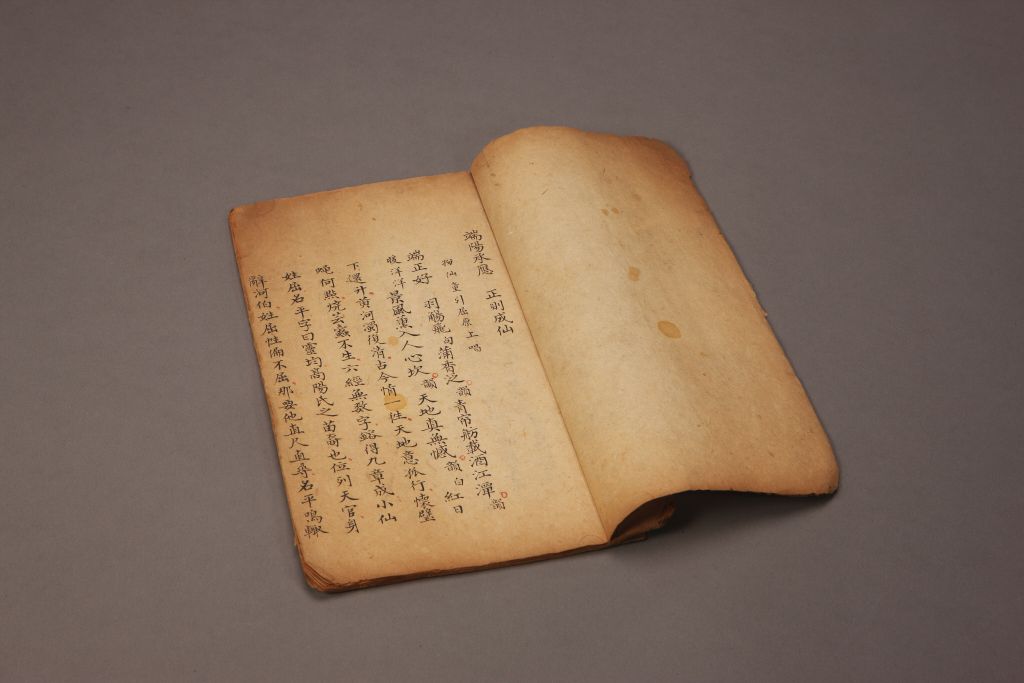 端陽承應 正則成仙
扮仙童引屈原上唱
端正好 羽觴飛向蒲香之韻青帘舫載酒江潭韻
暖洋洋景風薰入人心坎韻天地真無憾韻白紅日
下還升黄河濁復清古今情一性天地意孤行懷壁
蠅何點燒芸蠹不生六經無数字鎔得九章成小仙
姓屈名平字曰靈均高陽氏之苗裔也位列天官身
辭河伯姓屈性偏不屈那要他直尺直尋名平鳴